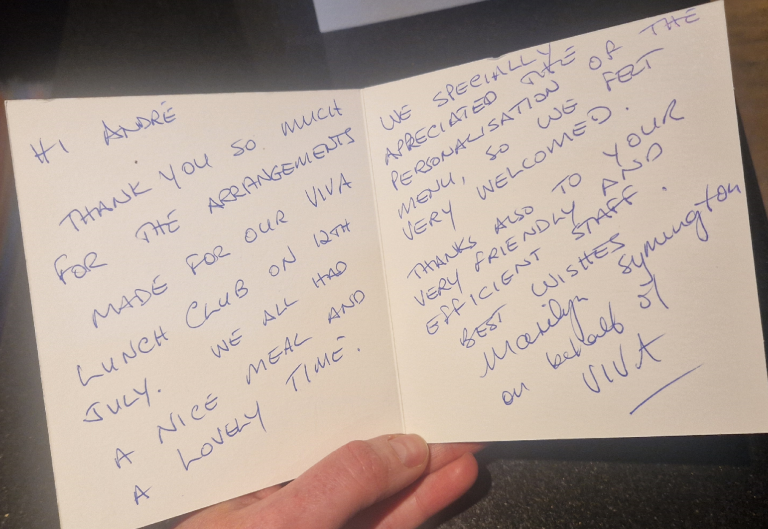 HI ANDRÉ
THANK YOU SO MUCH
FOR THE ARRANGEMENTS
MADE FOR OUR VIVA
LUNCH CLUB ON 12TH
JULY. WE ALL HAD
A NICE MEAL AND
A LOVELY TIME.
WE SPECIALLY
APRECIATED THE
PERSONALISATION OF THE
MENU, SO WE FELT
VERY WELCOMED.
THANKS ALSO TO YOUR
VERY FRIENDLY AND
EFFICIENT STAFF.
BEST WISHES
Marilyn Symington
on behalf of
VIVA